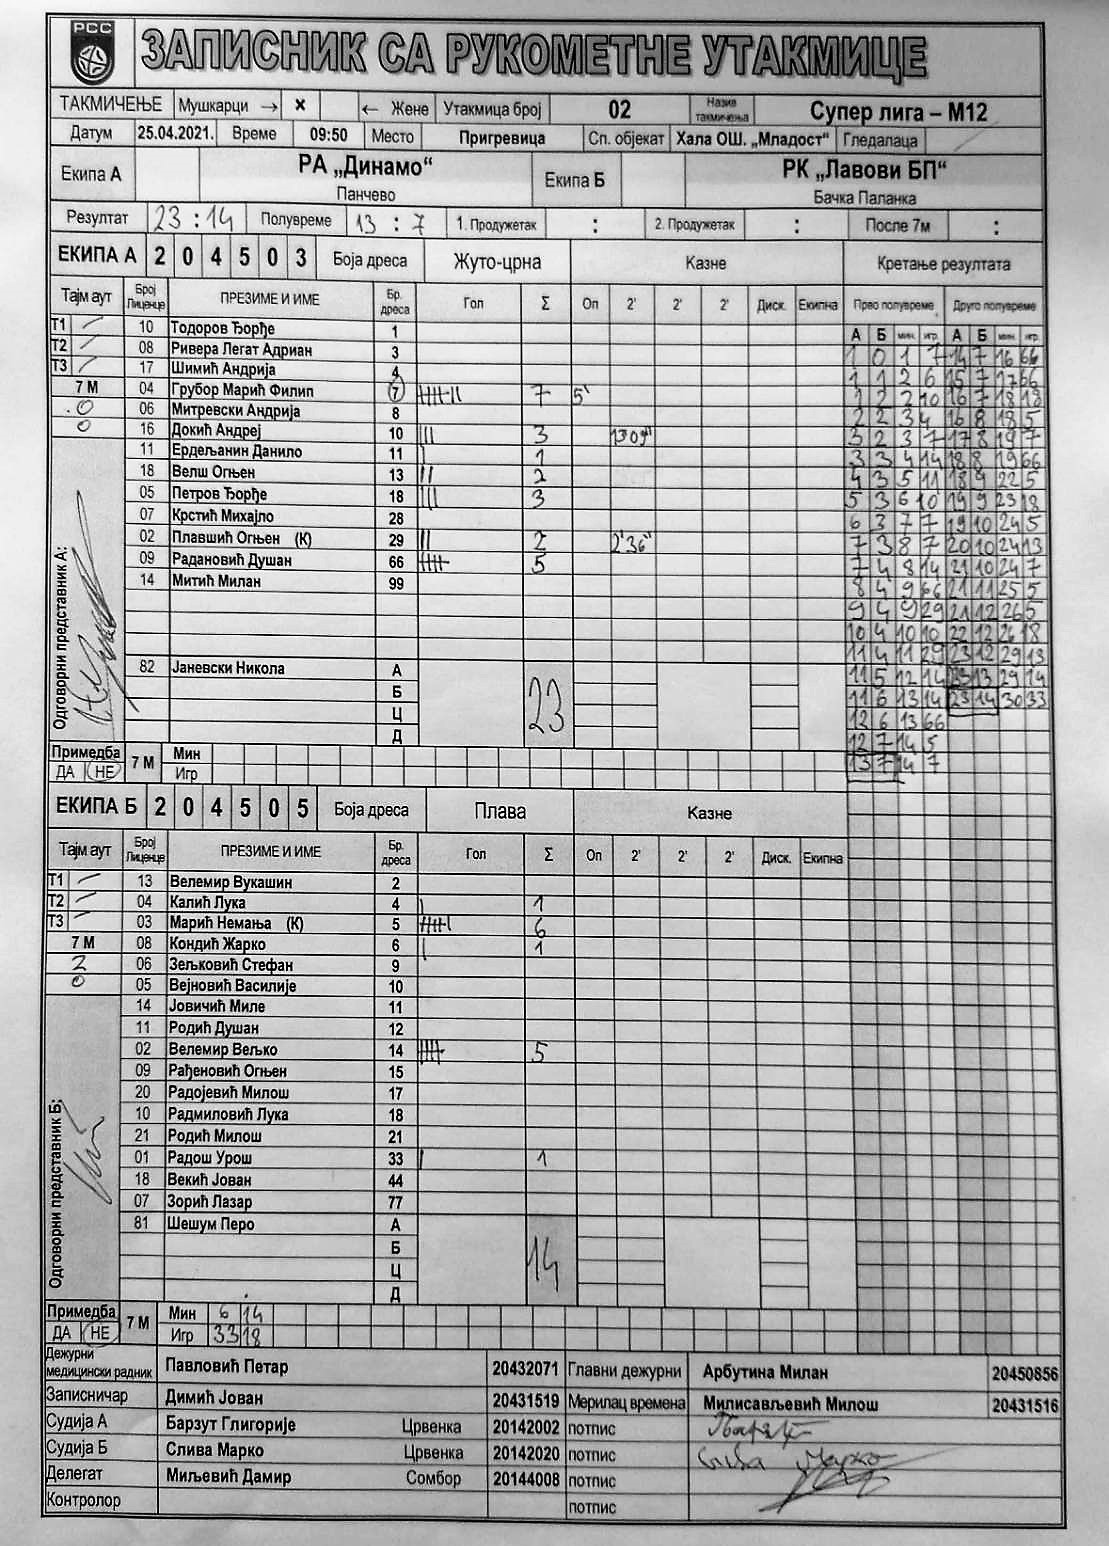 РСС
ЗАПИСНИК СА РУКОМЕТНЕ УТАКМИЦЕ
ТАКМИЧЕЊЕ Мушкарци → × ← Жене Утакмица број 02 Назив такмичења Супер лига – М12
Датум 25.04.2021. Време 09:50 Место Пригревица Сп. објекат Хала ОШ. „Младост“ Гледалаца
Екипа А РА „Динамо“ Панчево Екипа Б РК „Лавови БП“ Бачка Паланка
Резултат 23 : 14 Полувреме 13 : 7 1. Продужетак : 2. Продужетак : После 7м :
ЕКИПА А 2 0 4 5 0 3 Боја дреса Жуто-црна Казне Кретање резултата
Тајм аут Број Лиценце ПРЕЗИМЕ И ИМЕ Бр. дреса Гол Σ Оп 2' 2' 2' Диск. Екипна Прво полувреме Друго полувреме
А Б мин. игр. А Б мин. игр.
Т1 10 Тодоров Ђорђе 1
Т2 08 Ривера Легат Адриан 3
Т3 17 Шимић Андрија 4
7 М 04 Грубор Марић Филип 7 7 5'
0 06 Митревски Андрија 8
0 16 Докић Андреј 10 3 13 09"
11 Ердељанин Данило 11 1
18 Велш Огњен 13 2
05 Петров Ђорђе 18 3
07 Крстић Михајло 28
02 Плавшић Огњен (К) 29 2 2'36"
09 Радановић Душан 66 5
14 Митић Милан 99
82 Јаневски Никола А
Б
Ц
Д
23
Одговорни представник А:
1 0 1 7 14 7 16 66
1 1 2 6 15 7 17 66
1 2 2 10 16 7 18 18
2 2 3 4 16 8 18 5
3 2 3 7 17 8 19 7
3 3 4 14 18 8 19 66
4 3 5 11 18 9 22 5
5 3 6 10 19 9 23 18
6 3 7 7 19 10 24 5
7 3 8 7 20 10 24 13
7 4 8 14 21 10 24 7
8 4 9 66 21 11 25 5
9 4 9 29 21 12 26 5
10 4 10 10 22 12 26 18
11 4 11 29 23 12 29 13
11 5 12 14 23 13 29 14
11 6 13 14 23 14 30 33
12 6 13 66
12 7 14 5
13 7 14 7
Примедба ДА НЕ 7 М Мин
Игр
ЕКИПА Б 2 0 4 5 0 5 Боја дреса Плава Казне
Тајм аут Број Лиценце ПРЕЗИМЕ И ИМЕ Бр. дреса Гол Σ Оп 2' 2' 2' Диск. Екипна
Т1 13 Велемир Вукашин 2
Т2 04 Калић Лука 4 1
Т3 03 Марић Немања (К) 5 6
7 М 08 Кондић Жарко 6 1
2 06 Зељковић Стефан 9
0 05 Вејновић Василије 10
14 Јовичић Миле 11
11 Родић Душан 12
02 Велемир Вељко 14 5
09 Рађеновић Огњен 15
20 Радојевић Милош 17
10 Радмиловић Лука 18
21 Родић Милош 21
01 Радош Урош 33 1
18 Векић Јован 44
07 Зорић Лазар 77
81 Шешум Перо А
Б
Ц
Д
14
Одговорни представник Б:
Примедба ДА НЕ 7 М Мин 6 14
Игр 33 18
Дежурни медицински радник Павловић Петар 20432071 Главни дежурни Арбутина Милан 20450856
Записничар Димић Јован 20431519 Мерилац времена Милисављевић Милош 20431516
Судија А Барзут Глигорије Црвенка 20142002 потпис
Судија Б Слива Марко Црвенка 20142020 потпис Слива Марко
Делегат Миљевић Дамир Сомбор 20144008 потпис
Контролор потпис